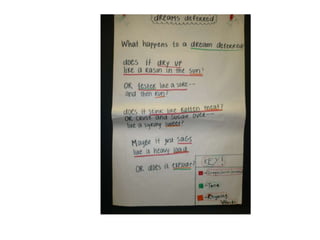 dreams deferred
What happens to a dream deferred
does it dry up
like a rasin in the sun?
OR fester like a sore--
and then run?
does it stink like rotten meat?
OR crust and sugar over--
like a syrupy sweet?
Maybe it just sags
like a heavy load.
OR does it explode?
KEY!
- Tone
- Rhyming
Words